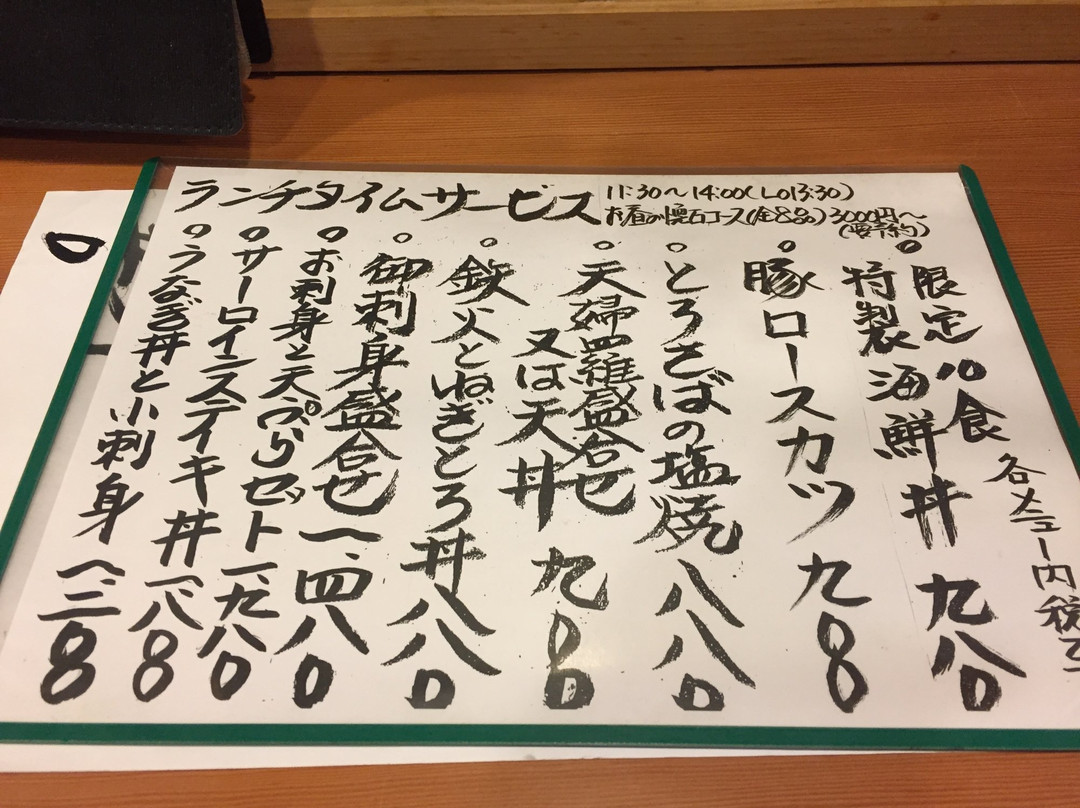 ランチタイムサービス
11:30〜14:00(LO13:30)
お昼の懐石コース(全8品)3000円〜
(要予約)
各メニュー内税
限定10食
特製海鮮丼 九八〇
豚ロースカツ 九〇〇
とろさばの塩焼 八八〇
天婦羅盛合せ
又は天丼 九〇〇
鉄火とねぎとろ丼 八八〇
御刺身盛合せ 一、四八〇
お刺身と天ぷらセット 一、九八〇
サーロインステイキ丼
うなぎ丼と小刺身